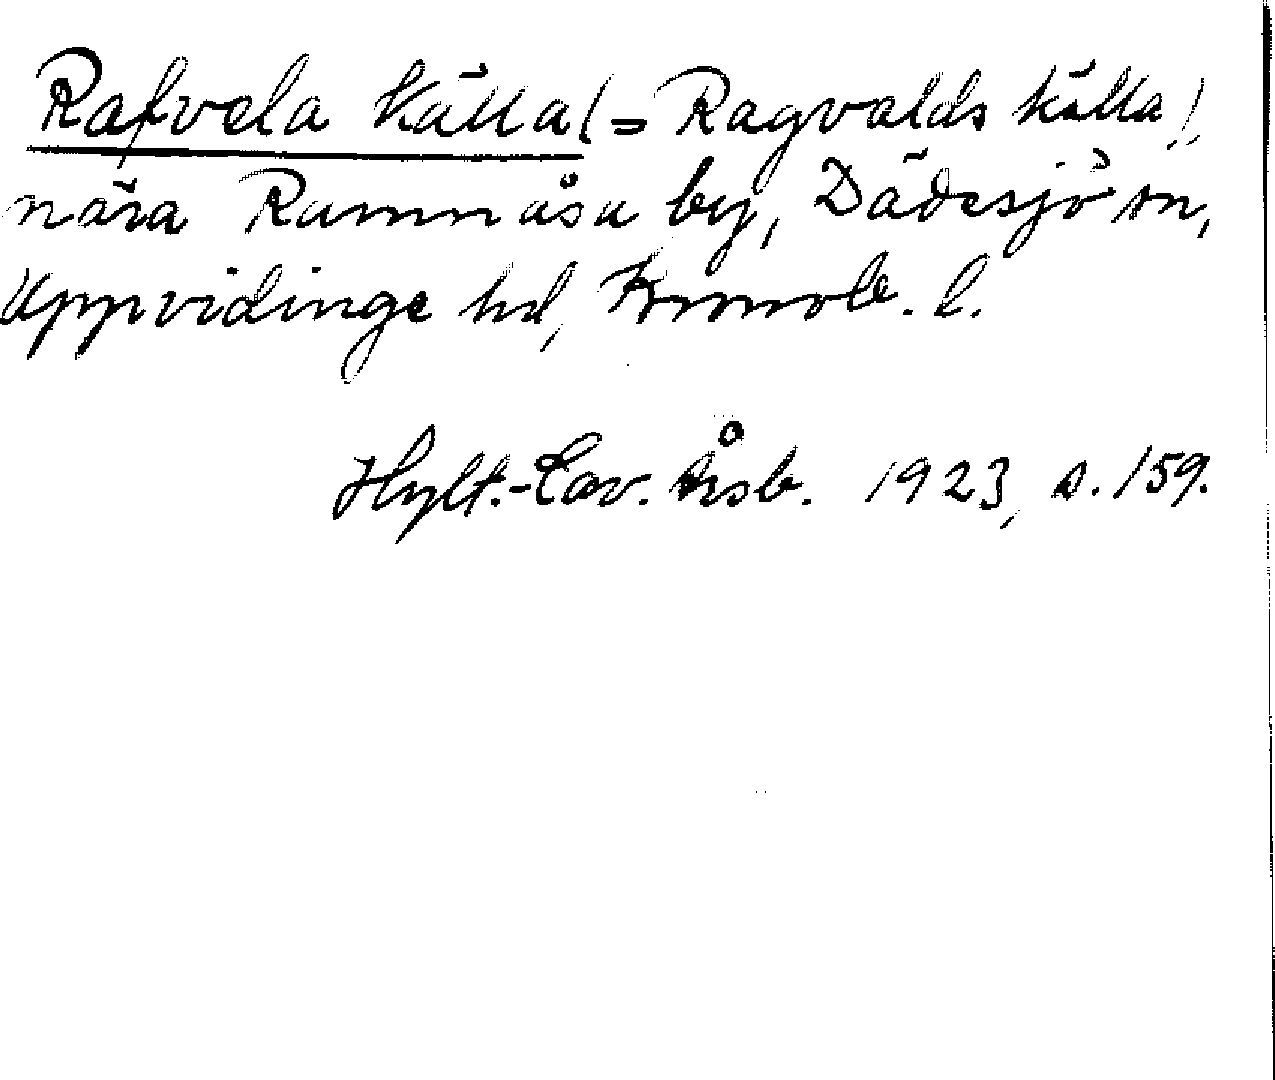 Rafvela källa (= Ragvalds källa),
nära Ramnåsa by, Dädesjö sn,
Uppvidinge hd, Kronob. l.
Hylt.-Cav. Årsb. 1923, s. 159.